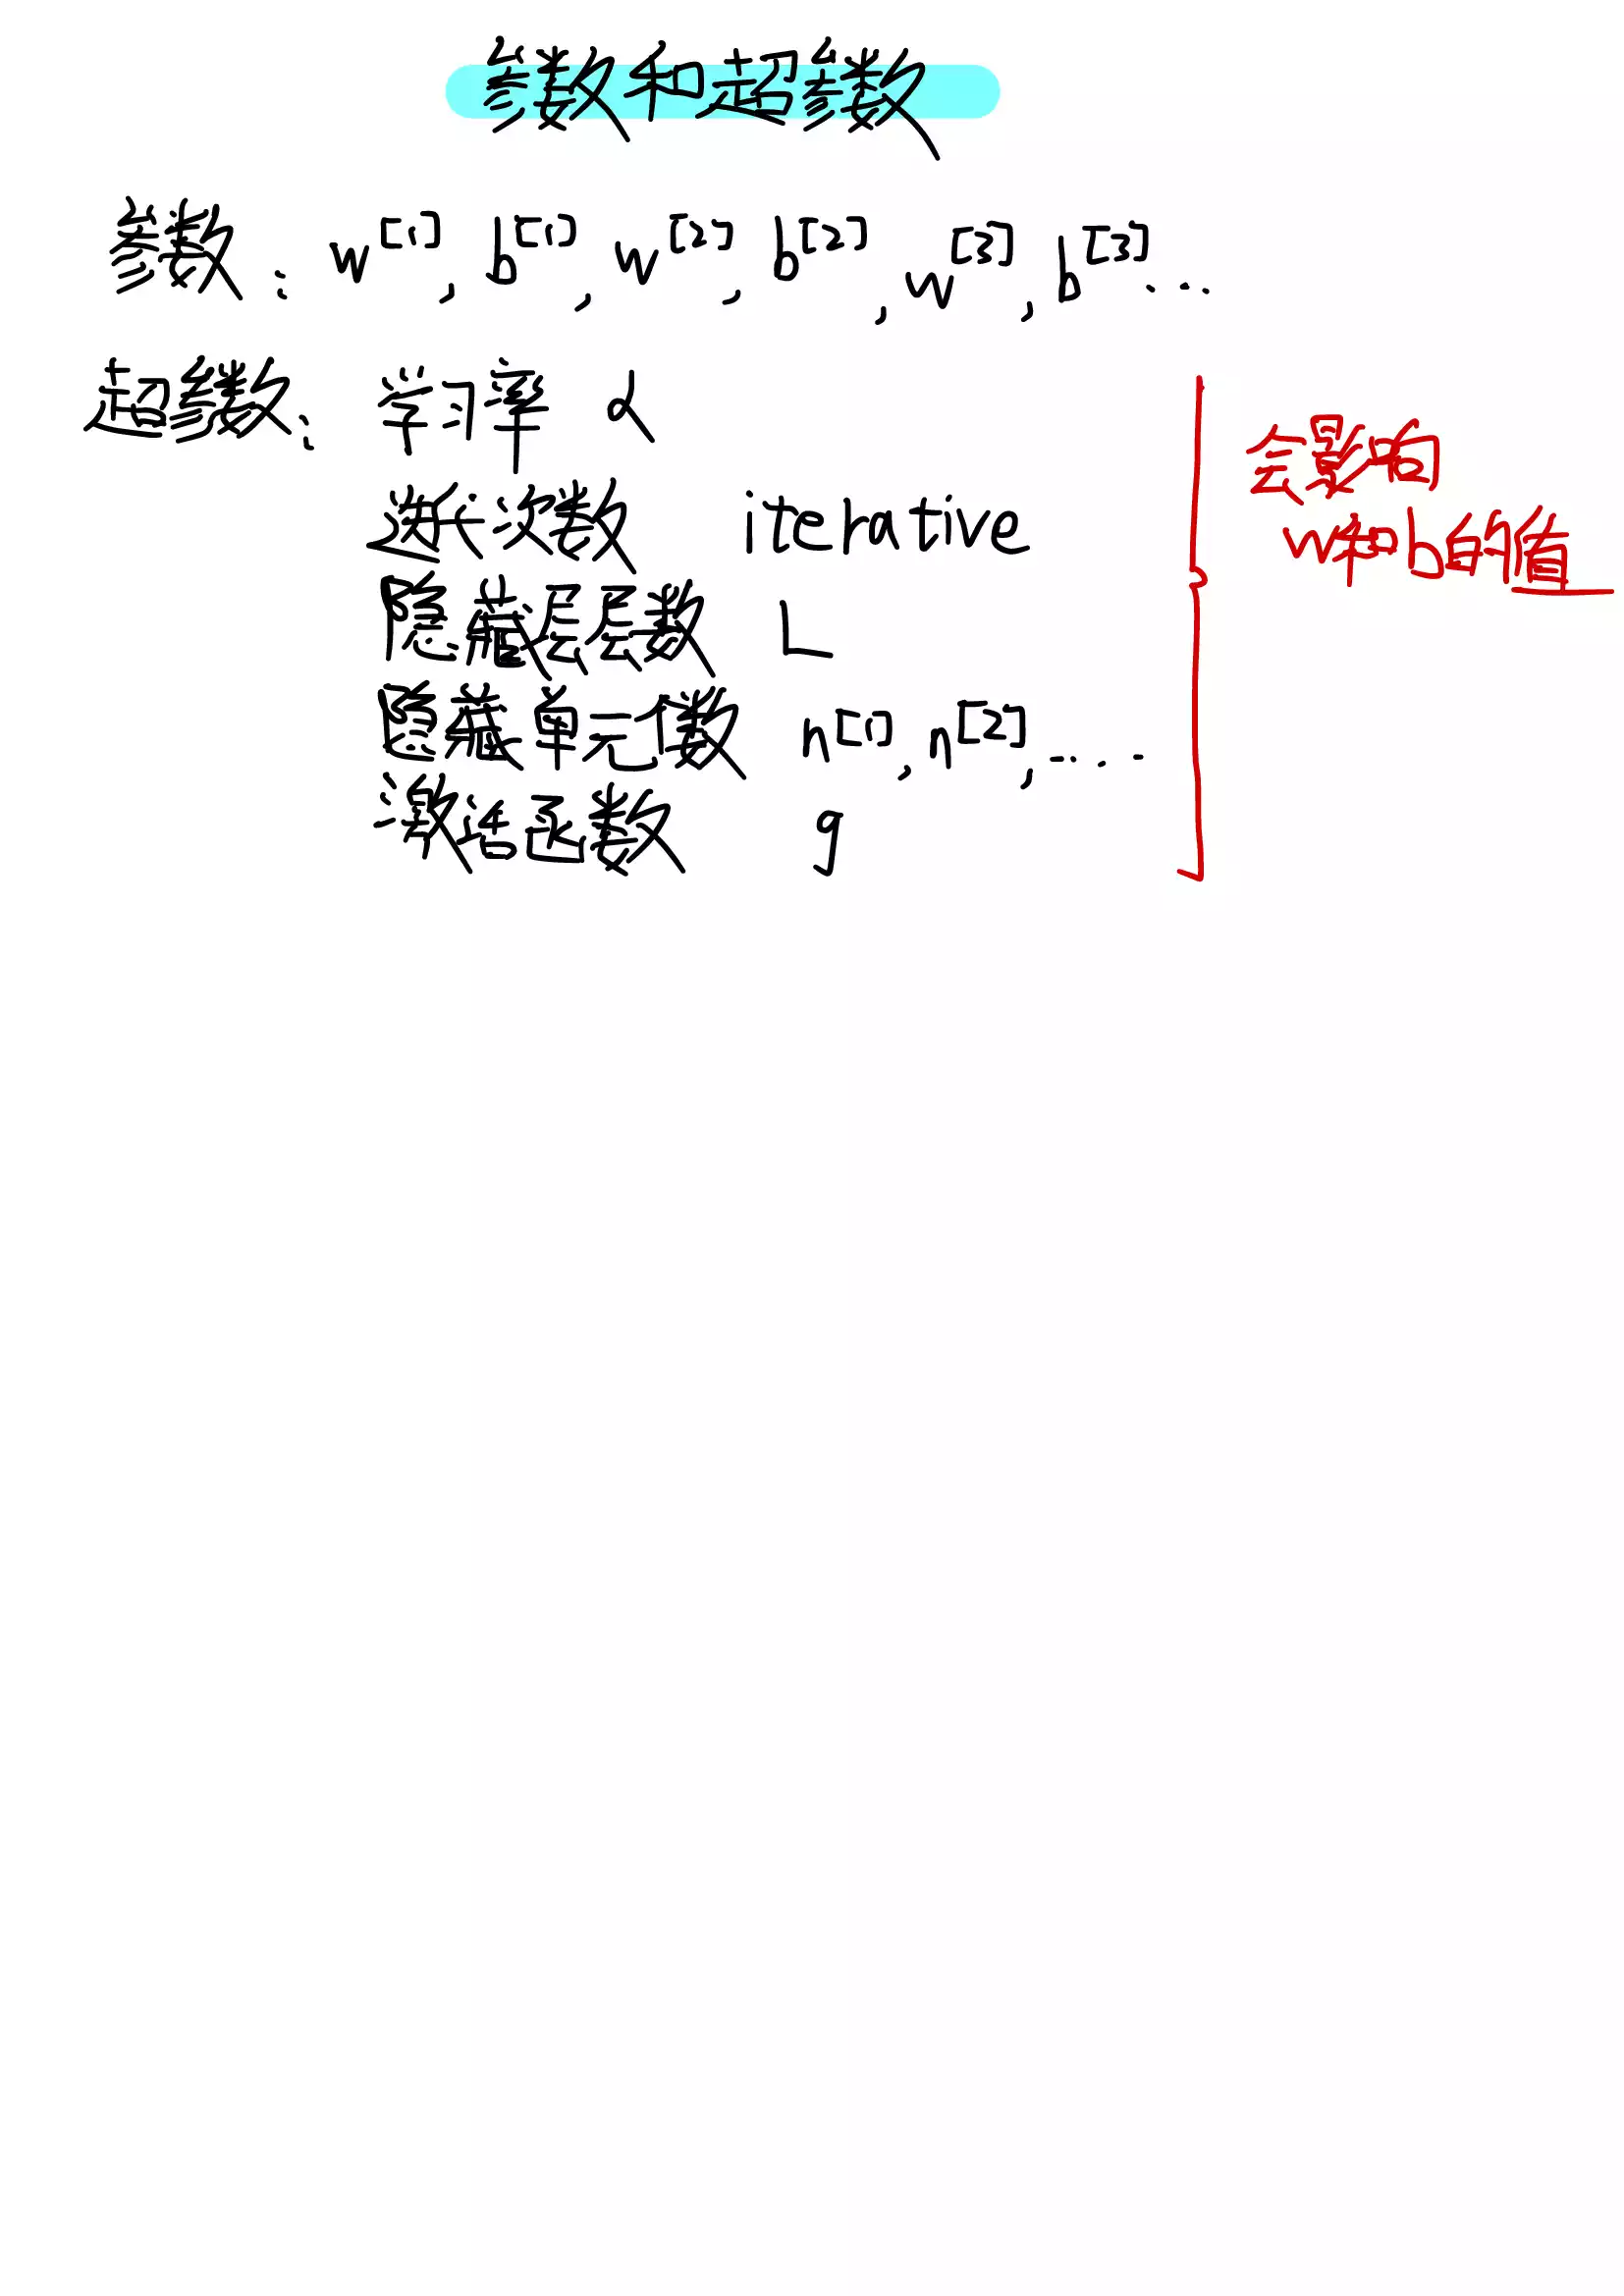 参数和超参数
参数: w[1], b[1], w[2], b[2], w[3], b[3]...
超参数: 学习率 α
迭代次数 iterative
隐藏层层数 L
隐藏单元个数 n[1], n[2], ....
激活函数 g
会影响
w和b的值